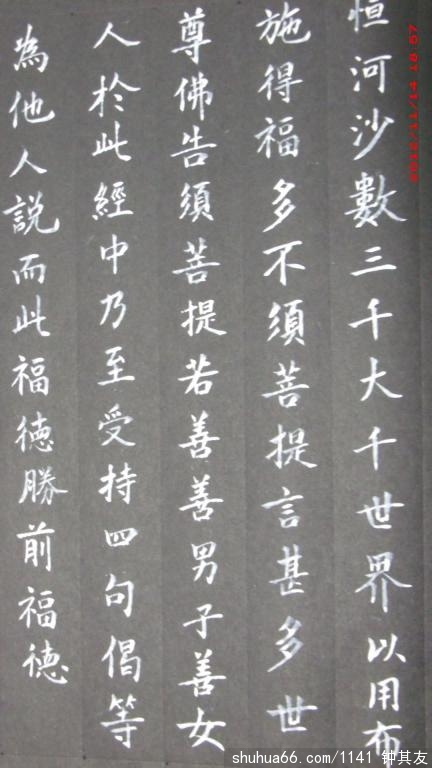 恒河沙數三千大千世界以用布
施得福多不須菩提言甚多世
尊佛告須菩提若善善男子善女
人於此經中乃至受持四句偈等
為他人説而此福德勝前福德
2012/11/14 18:57
shuhua66.com/1141 钟其友